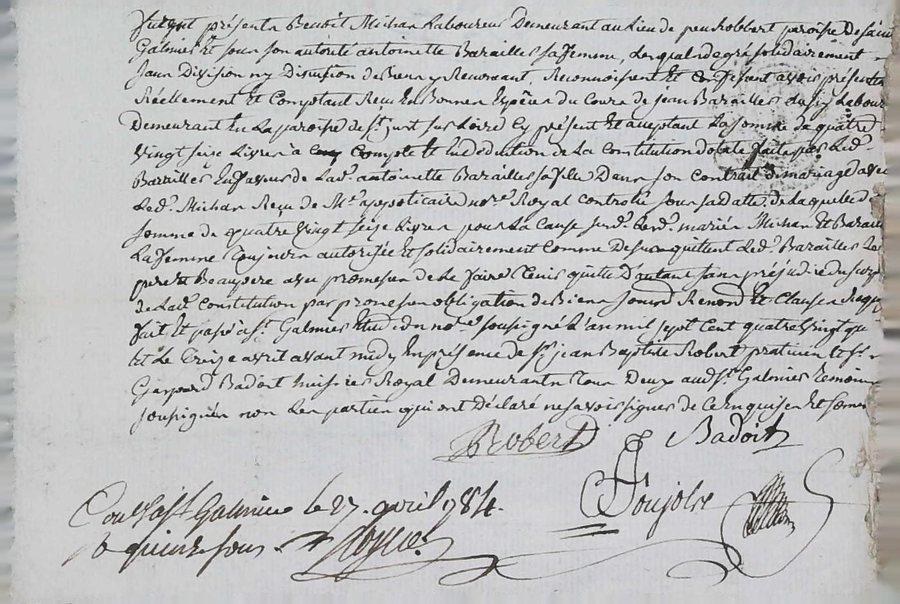 furent présents Benoit Michas Laboureur Demeurant au Lieu de paroisse De Saint
Galmier Et sous son autorité antoinette Barailles sa femme, Lesquels de gré solidairement
sans Division ny Discution de biens y Renonceant, Reconnoissent Et Confessent avoir présentem
Réellement Et Comptant Reçu En Bonnes Espèces du Cours de jean Barailles Labour
Demeurant En La paroisse de St. just sur Loire Cy présent Et acceptant La somme de quatre
vingt seize Livres à Compte Et En déduction de La Constitution dotale faite par Led.
Barailles En faveur de Lad. antoinette Barailles sa fille Dans son Contrat de mariage avec
Led. Michas Reçu de Me. appoticaire nore. Royal Controlé sous sa date, de Laquelle d
somme de quatre vingt seize Livres pour La Cause Lesd. mariés Michas Et Baraille
La femme Toujours autorisée Et solidairement Comme Dessus quittent Led. Barailles Leur
pere Et Beaupere avec promesse de Le faire Tenir quitte D'autant sans préjudice du surp
de Lad. Constitution par promesse obligation de Biens soumis Renond Et Clauses Requ
fait Et passé à St. Galmier Etude du nore. soussigné L'an mil sept Cent quatre vingt qu
Et Le Treize avril avant midy En présence de Sr. jean Baptiste Robert praticien Et Sr.
Gaspard Badoit huissier Royal Demeurants Tous Deux aud. St. Galmier Temoins
soussignés non Les parties qui ont Déclaré ne savoir signer de Ce Enquises Et
Robert Badoit
Poujols
Con. à St. Galmier le 27. avril 1784.
R quinze sous